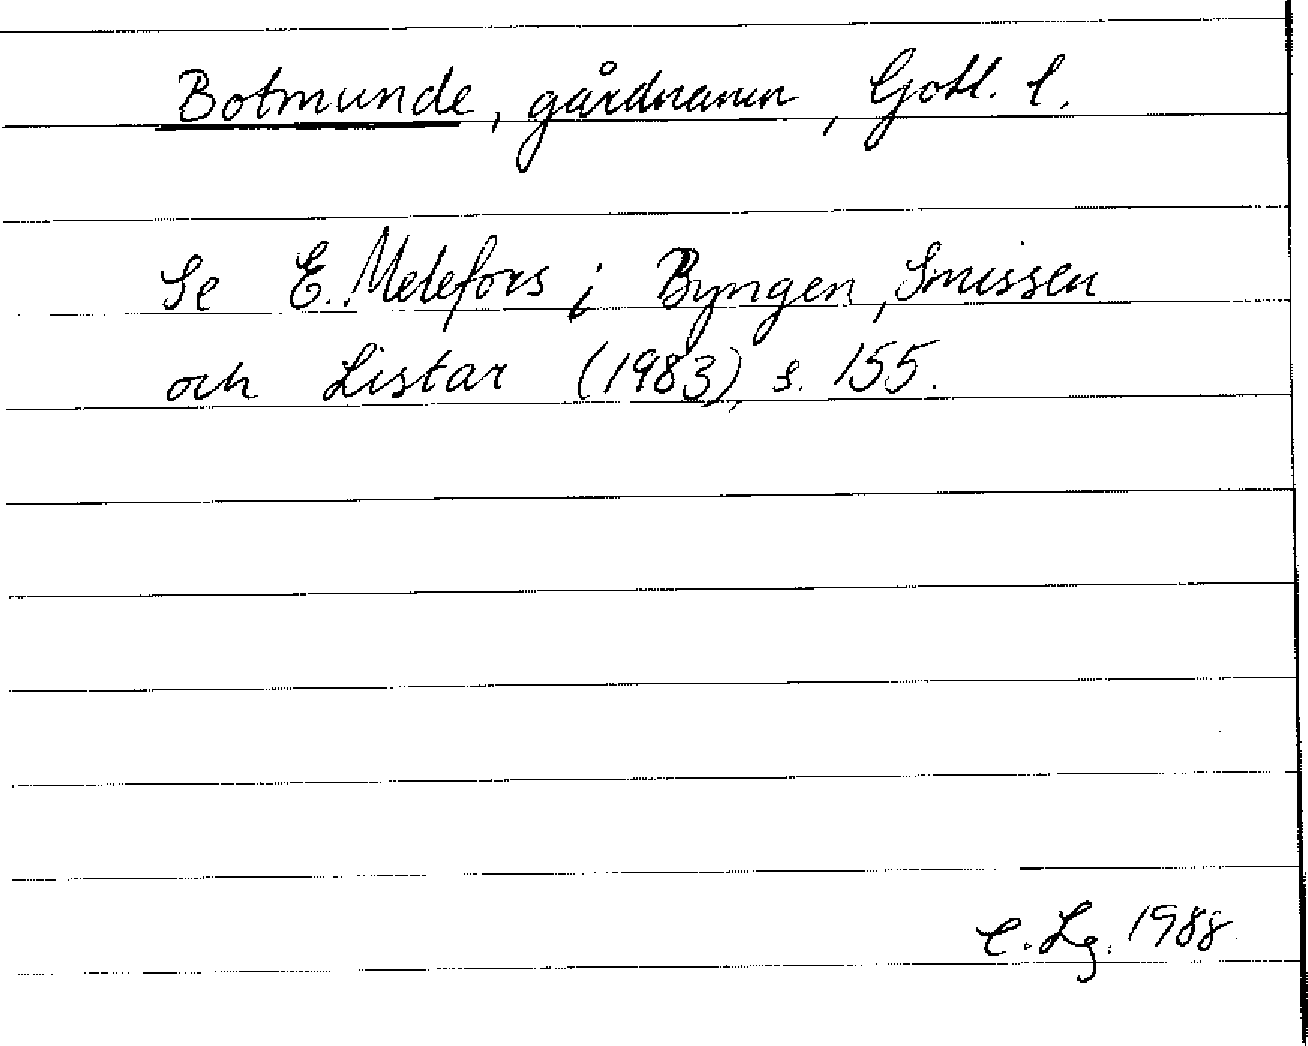 Botmunde, gårdnamn, Gotl. l.
Se E. Melefors i Byngen, Smissen
och Listar (1983), s. 155.
C. Lg. 1988